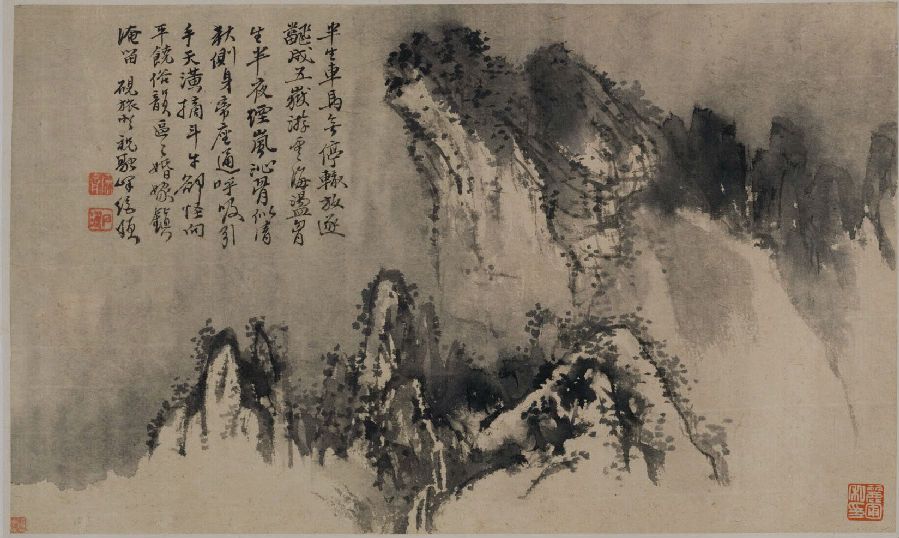 半生車馬無停轍放逐
飜成五嶽游雲海盪胷
生半夜煙嵐沁骨似清
秋側身帝座通呼吸引
手天潢摘斗牛卻怪向
平饒俗韻區〻婚嫁鎮
淹留 硯旅登祝融峰絕頂